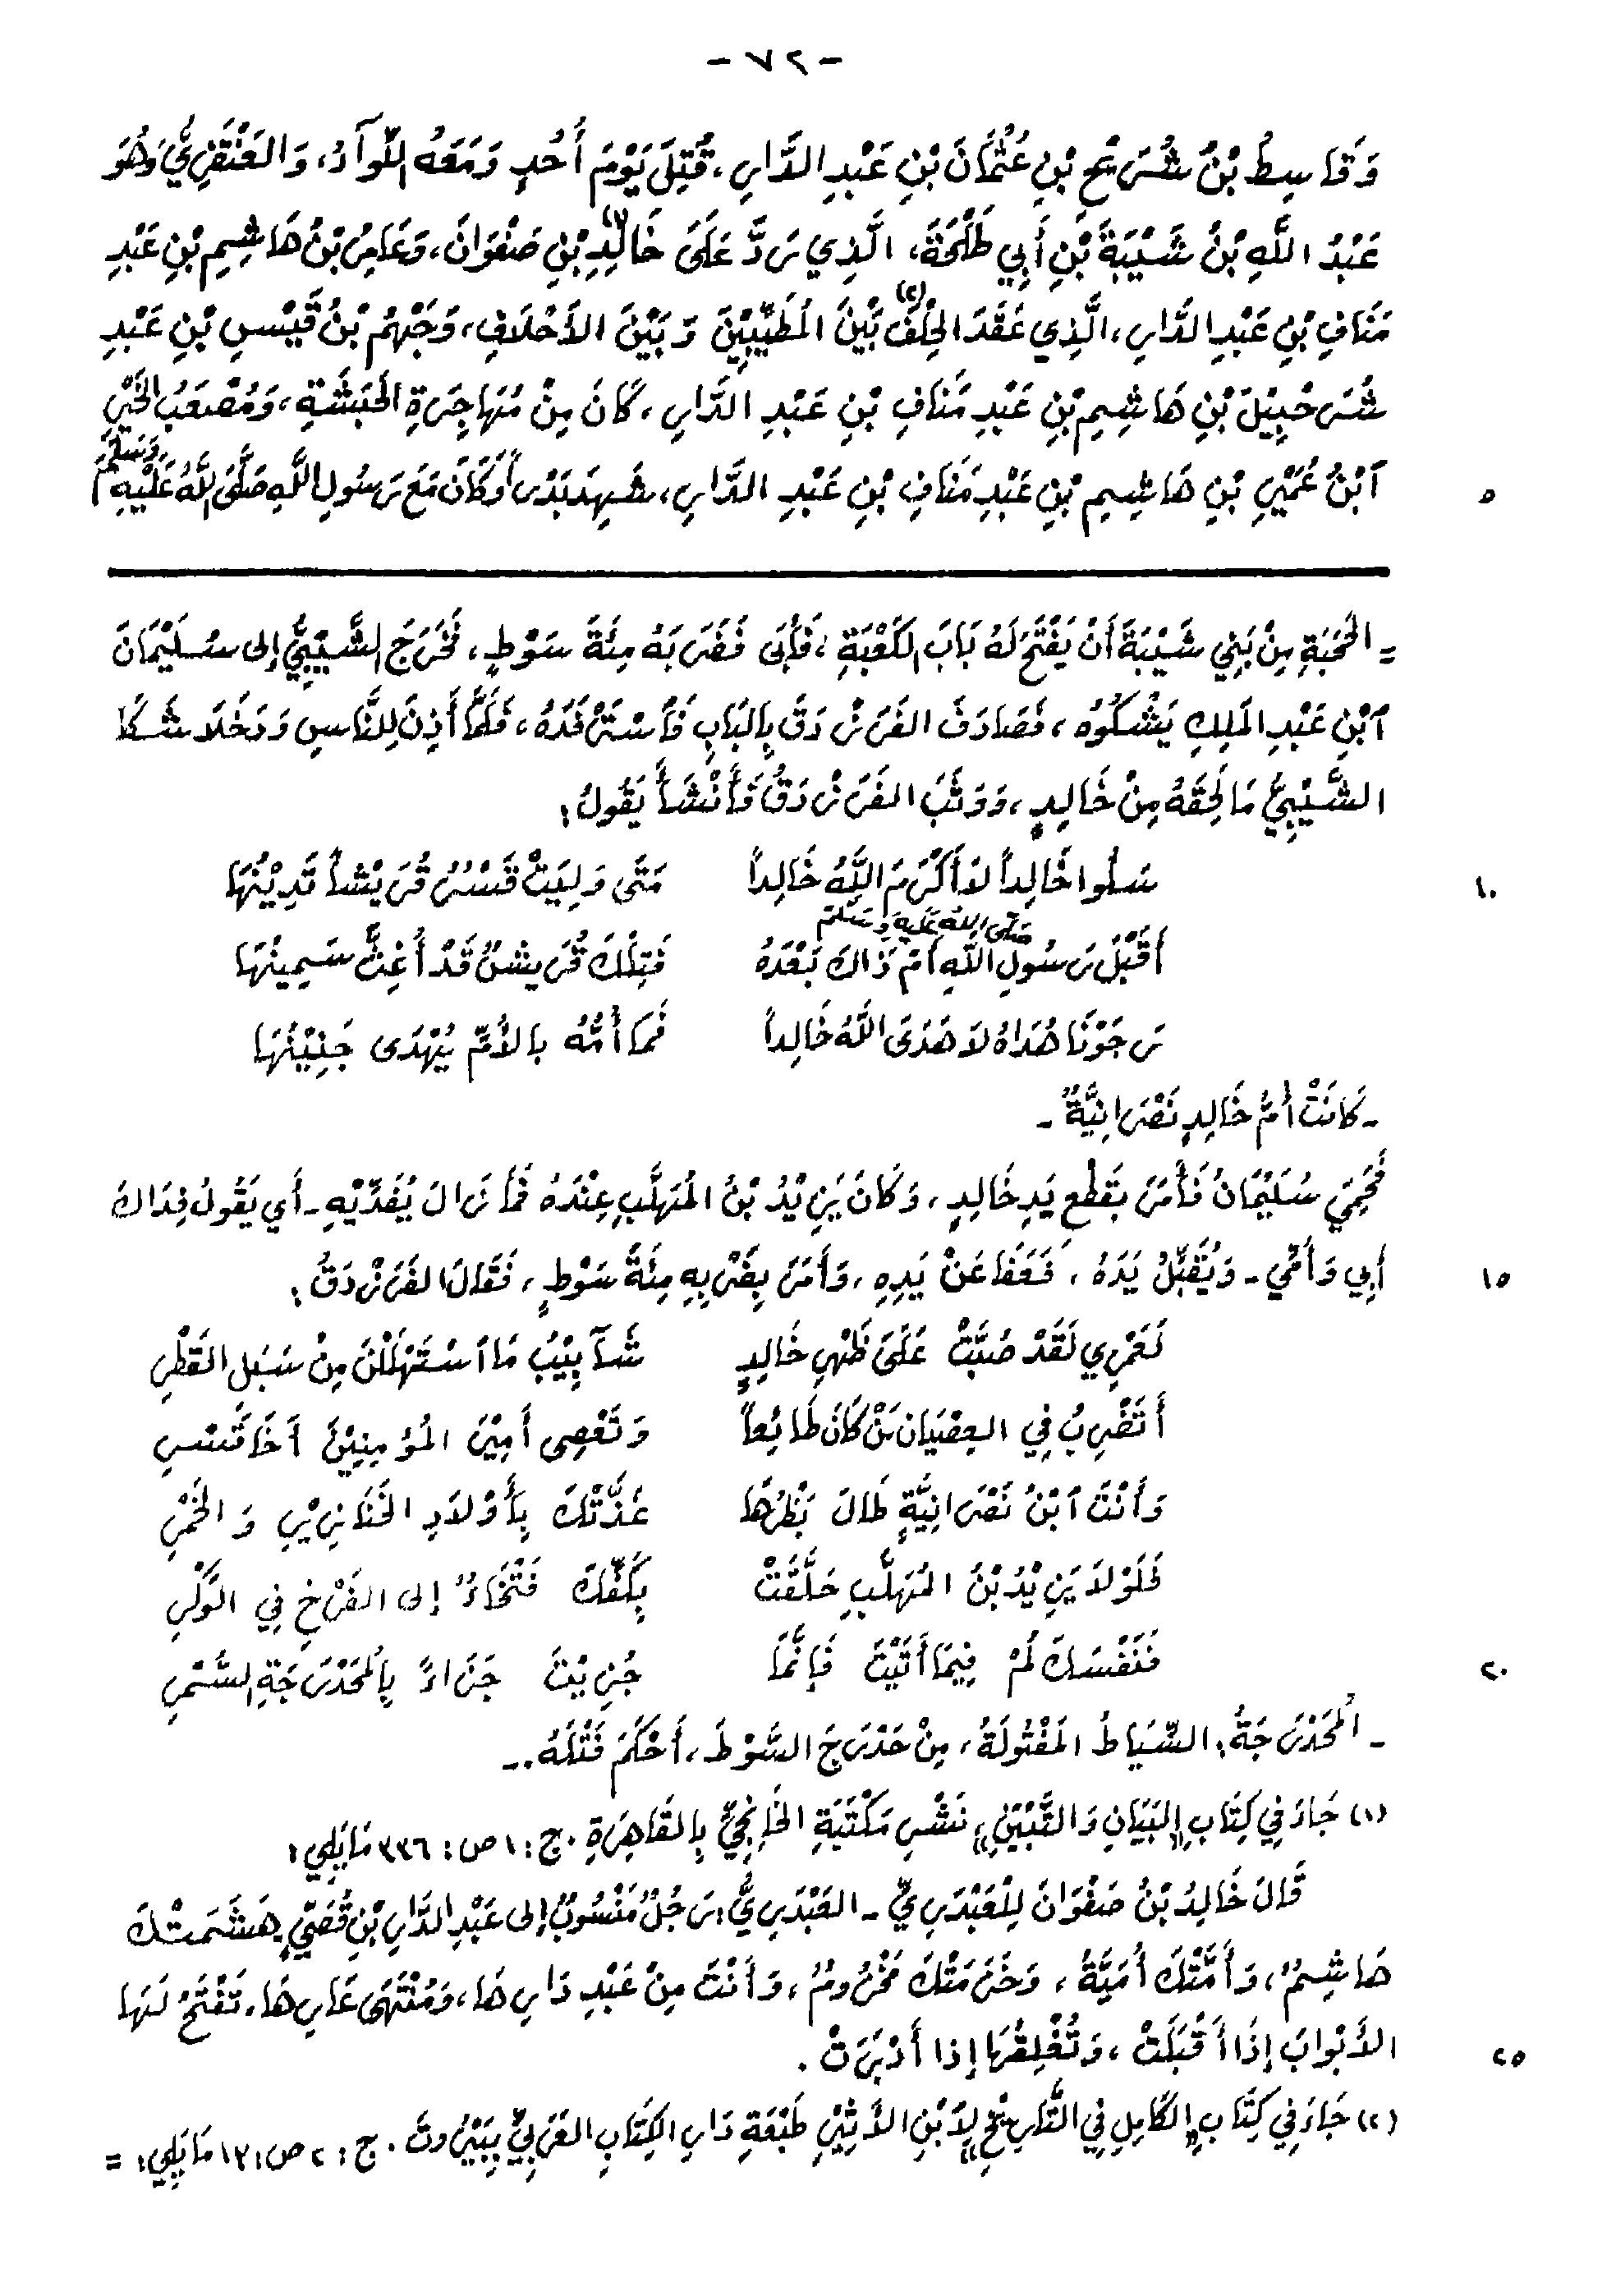 - ٧٢ -
وَقَاسِطُ بْنُ شُرَيْحِ بْنِ عُثْمَانَ بْنِ عَبْدِ الدَّارِ، قُتِلَ يَوْمَ أُحُدٍ وَمَعَهُ اللِّوآءُ، وَالعَنْقَزِيُّ وَهُوَ
عَبْدُ اللَّهِ بْنُ شَيْبَةَ بْنِ أَبِي طَلْحَةَ، الَّذِي رَدَّ عَلَى خَالِدِ (١) بْنِ صَفْوَانَ، وَعَامِرُ بْنُ هَاشِمِ بْنِ عَبْدِ
مَنَافِ بْنِ عَبْدِ الدَّارِ، الَّذِي عَقَدَ الحِلْفَ (٢) بَيْنَ المُطَيِّبِيْنَ وَبَيْنَ الأَحْلَافِ، وَجَهْمُ بْنُ قَيْسِ بْنِ عَبْدِ
شُرَحْبِيْلَ بْنِ هَاشِمِ بْنِ عَبْدِ مَنَافِ بْنِ عَبْدِ الدَّارِ، كَانَ مِنْ مُهَاجِرَةِ الحَبَشَةِ، وَمُصْعَبُ الخَيْرِ
ٱبْنُ عُمَيْرِ بْنِ هَاشِمِ بْنِ عَبْدِ مَنَافِ بْنِ عَبْدِ الدَّارِ، شَهِدَ بَدْرَاً وَكَانَ مَعَ رَسُولِ اللَّهِ صَلَّى اللَّهُ عَلَيْهِ وَسَلَّمَ ٥
= الحَجَبَةِ مِنْ بَنِي شَيْبَةَ أَنْ يَفْتَحَ لَهُ بَابَ الكَعْبَةِ، فَأَبَى فَضَرَبَهُ مِئَةَ سَوْطٍ، فَخَرَجَ الشَّيْبِيُّ إلى سُلَيْمَانَ
ٱبْنِ عَبْدِ المَلِكِ يَشْكُوُهُ، فَصَادَفَ الفَرَزْدَقَ بِالبَابِ فَٱسْتَرْفَدَهُ، فَلَمَّا أَذِنَ لِلنَّاسِ وَدَخَلَا شَكَا
الشَّيْبِيُّ مَا لَحِقَهُ مِنْ خَالِدٍ، وَوَثَبَ الفَرَزْدَقُ فَأَنْشَأَ يَقُولُ:
سَلُوا خَالِداً لاَ أَكْرَمَ اللَّهُ خَالِداً مَتَى وَلِيَتْ قَسْرٌ قُرَيْشاً تَدِيْنُهَا ١٠
أَقَبْلَ رَسُولِ اللَّهِ صَلَّى اللَّهُ عَلَيْهِ وَسَلَّمَ أَمْ ذَاكَ بَعْدَهُ فَتِلْكَ قُرَيشٌ قَدْ أُغِثَّ سَمِينُهَا
رَجَوْنَا هُدَاهُ لاَ هَدَى اللَّهُ خَالِداً فَمَا أُمُّهُ بِالأُمِّ يُهْدَى جَنِيْنُهَا
ـ كَانَتْ أُمُّ خَالِدٍ نَصْرَانِيَّةٌ ـ
فَحَمِيَ سُلَيْمَانُ فَأَمَرَ بِقَطْعِ يَدِ خَالِدٍ، وَكَانَ يَزِيْدُ بْنُ المُهَلَّبِ عِنْدَهُ فَمَا زَالَ يُفَدِّيْهِ ـ أَي يَقُولُ فِدَاكَ
أَبِي وَأُمِّي ـ وَيُقَبِّلُ يَدَهُ، فَعَفَا عَنْ يَدِهِ، وَأَمَرَ بِضَرْبِهِ مِئَةَ سَوْطٍ، فَقَالَ الفَرَزْدَقُ: ١٥
لَعَمْرِي لَقَدْ صُبَّتْ عَلَى ظَهْرِ خَالِدٍ شَآبِيْبُ مَا ٱسْتَهْلَلْنَ مِنْ سَبَلِ القَطْرِ
أَتَضْرِبُ فِي العِصْيَانِ مَنْ كَانَ طَائِعاً وَتَعْصِى أَمِيْرَ المُؤْمِنِيْنَ أَخَا قَسْرِ
وَأَنْتَ ٱبْنُ نَصْرَانِيَّةٍ طَالَ بَظْرُهَا غَذَّتْكَ بِأَوْلاَدِ الخَنَازِيْرِ وَالخَمْرِ
فَلَوْلاَ يَزِيْدُ بْنُ المُهَلَّبِ حَلَّقَتْ بِكَفِّكَ فَتْخَاءُ إلى الفَرْخِ فِي الوَكْرِ
فَنَفْسَكَ لُمْ فِيمَا أَتَيْتَ فَإنَّمَا جُزِيْتَ جَزَاءً بِالمُحَدْرَجَةِ السُّمْرِ ٢٠
ـ المُحَدْرَجَةُ: السِّيَاطُ المَفْتُولَةُ، مِنْ حَدْرَجَ السَّوْطَ، أَحْكَمَ فَتْلَهُ. ـ
(١) جَاءَ فِي كِتَابِ «البَيَانِ وَالتَّبْيَيْنِ» نَشْرِ مَكْتَبَةِ الخَانْجِيِّ بِالقَاهِرَةِ. ج: ١ ص: ٣٣٦ مَايَلِي:
قَالَ خَالِدُ بْنُ صَفْوَانَ لِلْعَبْدَرِيِّ ـ العَبْدَرِيُّ: رَجُلٌ مَنْسُوبٌ إلى عَبْدِ الدَّارِ بْنِ قُصَيٍّ ـ هَشَمَتْكَ
هَاشِمٌ، وَأَمَّتْكَ أُمَيَّةُ، وَخَزَمَتْكَ مَخْزُومٌ، وَأَنْتَ مِنْ عَبْدِ دَارِهَا، وَمُنْتَهَى عَارِهَا، تَفْتَحُ لَهَا
الأَبْوَابَ إِذَا أَقْبَلَتْ، وَتُغْلِقُهَا إذا أَدْبَرَتْ. ٢٥
(٢) جَاءَ فِي كِتَابِ «الكَامِلِ فِي التَّارِيْخِ» لِاَبْنِ الأَثِيْرِ طَبْعَةِ دَارِ الكِتَابِ العَرَبِيِّ بِبَيْرُوتَ. ج: ٢ ص: ١٣ مَايَلِي: =